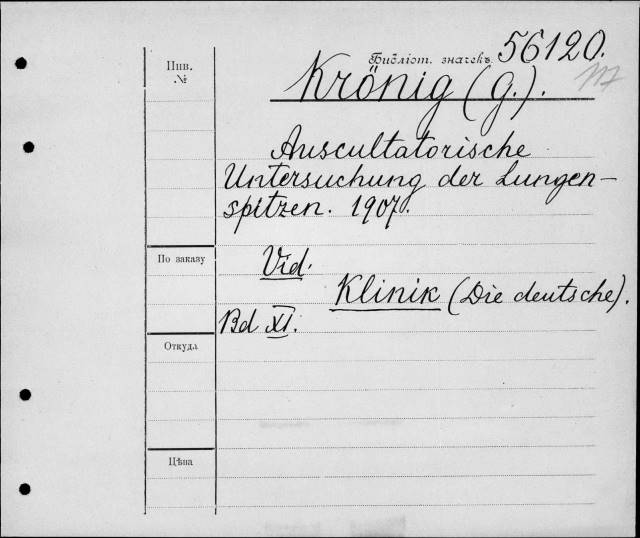 Библіот. значекъ 56120.
Инв.
№
Krönig (G.).
Auscultatorische
Untersuchung der Lungen-
spitzen. 1907.
По заказу
Vid.
Klinik (Die deutsche).
Bd XI.
Откуда
Цѣна